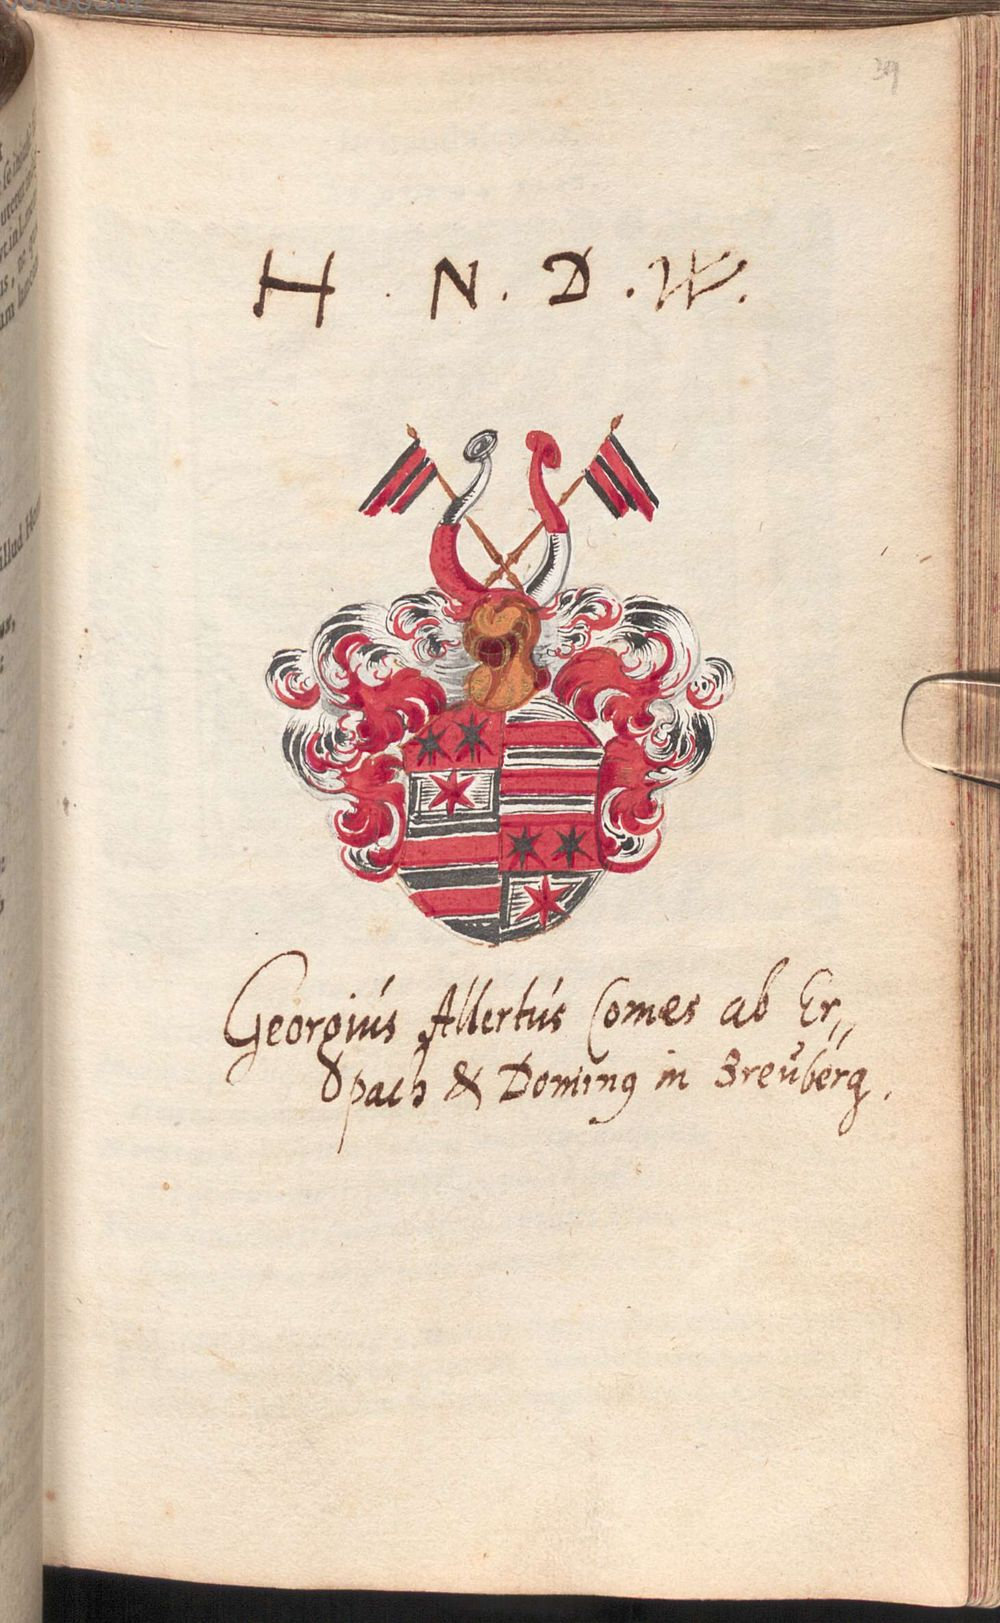 39
H . N . D . W .
Georgius Albertus Comes ab Er,,
pach & Doming in Breŭberg .